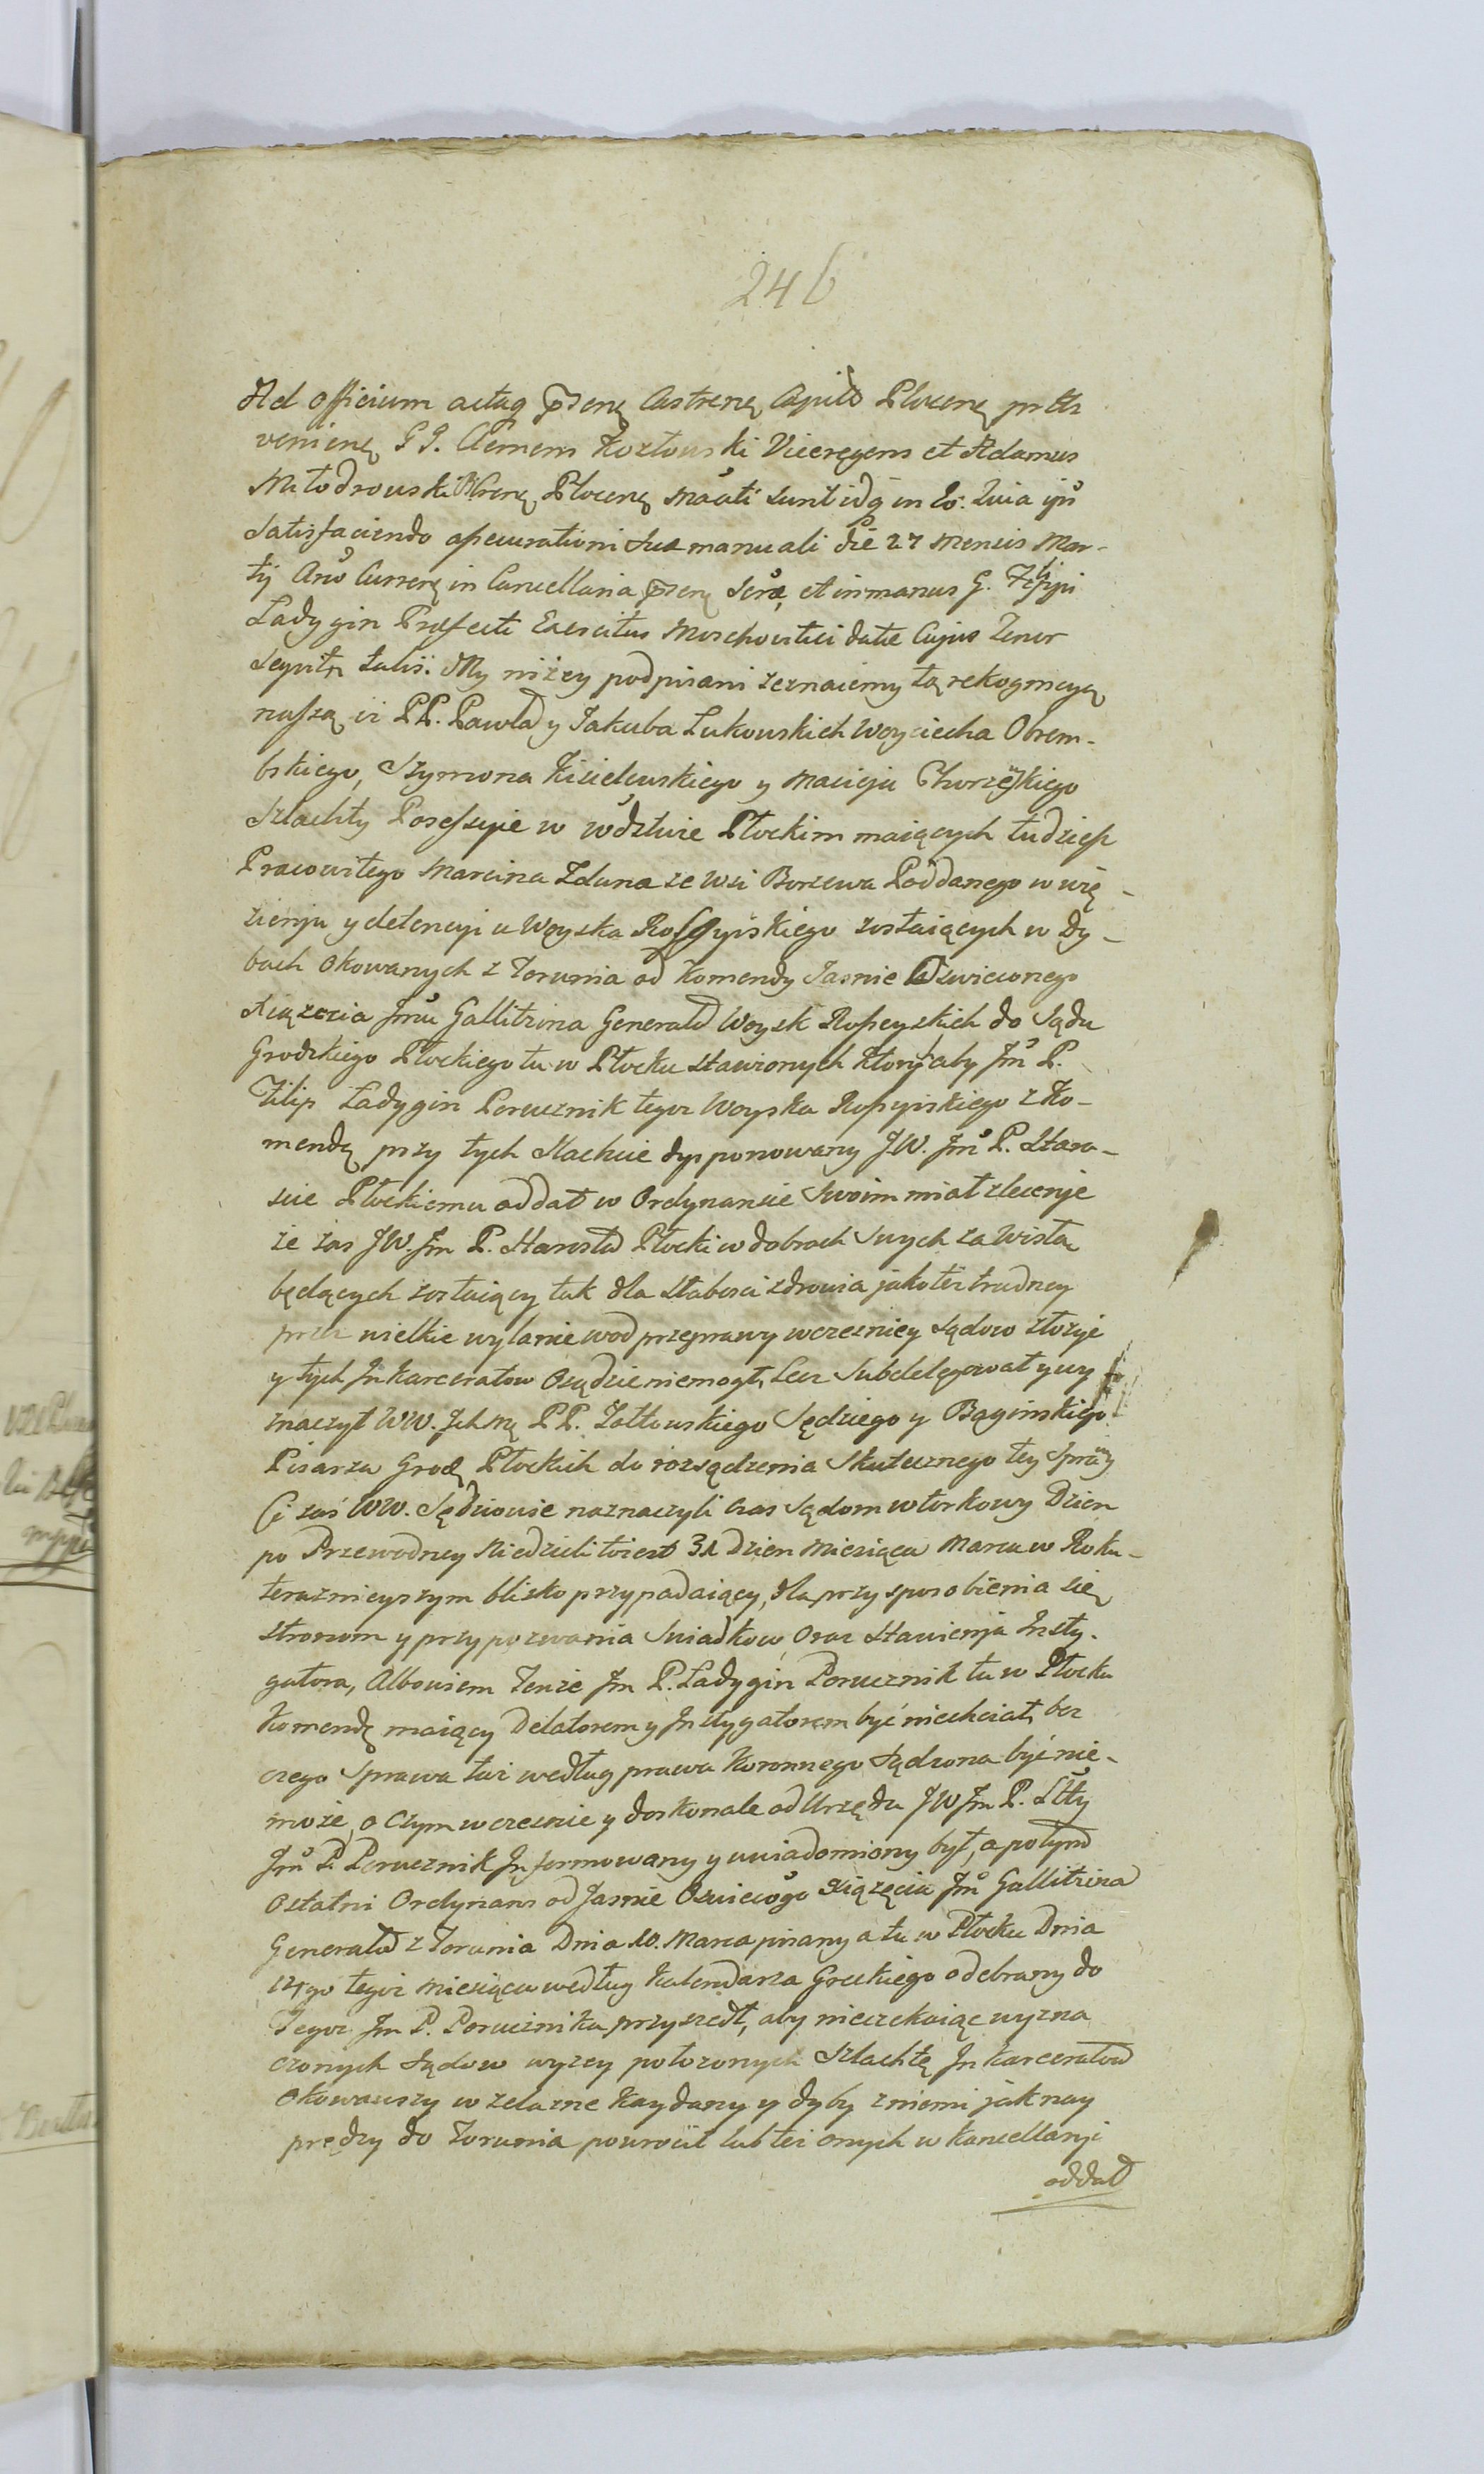 246
Ad officium actaq pżenę Castrenę Capitł Plocenę prtlr
venienę G G. Clemens Kozłowski Viceregens et Adamus
Młodrowski Plocenę sunt idq in Eo: Quia ipi
Satisfaciendo assecurationi suæ manuali die 27 Mensis Mar-
tij Ano Currenę in Cancellaria pżenę et in manus G. Filippi
Ładygin Præfecti Exercitus Moschovitici datæ Cujus Tenor
Sequitr talis: My niżey podpisani zeznaiemy tą rekognicyą
naszą iż PP. Pawła y Jakuba Łukowskich Woyciecha Obrem-
bskiego, Szymona Kisielewskiego y Macieja
Szlachty Possessyie w wdztwie Płockim maiących tudziesz
Pracowitego Marcina Zduna ze wsi Borzewa Poddanego w wię-
zieniu y detencyi u Woyska Rossyiskiego zostaiących w dy-
bach okowanych z Torunia od Komendy Jasnie Oswieconego
Xiążęcia Jmu Gallitzina Generała Woysk Rossyskich do Sądu
Grodzkiego Płockiego tu w Płocku stawionych ktorych aby Jm P.
Filip Ładygin Porucznik tegoz Woyska Rossyiskiego z Ko-
mendą przy tych Slachcie dysponowany JW. Jm P. Staro-
scie Płockiemu oddał w Ordynansie Swoim miał zlecenie
że zas JW. Jm P. Starosta Płocki w dobrach Swych za Wisłą
będących zostaiący tak dla słabosci zdrowia jako też trudney
przez wielkie wylanie wod przeprawy wczesniey sądow złożyć
y tych Inkarceratow osądzić niemogł, Lecz Subdelegował y wy
znaczył WW. Jchmę PP. Zołtowskiego Sędziego y Bągińskiego
Pisarza Grodz Płockich do rozsądzenia Skutecznego tey Sprawy
Ci zaś WW. Sędziowie naznaczyli czas sądom wtorkowy Dzien
po Przewodney Niedzieli toiest 31 Dzien Miesiąca Marca w Roku
terazniejszym blisko przypadaiący, dla przysposobienia się
stronom y przypozwania Swiadkow, oraz stawienja Insty-
gatora, Albowiem Tenze Jm P. Ładygin Porucznik tu w Płocku
Komendę maiący Delatorem y Instygatorem być niechciał, bez
czego Sprawa taż według prawa Koronnego Sądzona być nie-
może, o czym wczesnie y doskonale od Urzędu JW Jm P. Stty
Jm P. Porucznik Informowany y uwiadomiony był, a potym
Ostatni Ordynans od Jasnie Oswieco̊go Xiążęcia Jm Gallitzina
Generała z Torunia Dnia 10. Marca pisany a tu w Płocku Dnia
14go tegoż Miesiąca według Kalendarza Greckiego odebrany do
Tegoz Jm P. Porucznika przyszedł, aby nieczekaiąc wyzna
czonych Sądow wyzey położonych Szlachtę Inkarceratow
okowawszy w zelazne Kaydany y dyby z niemi jak nay
prędzy do Torunia powrocił lub też onych w Kancellaryi
oddał